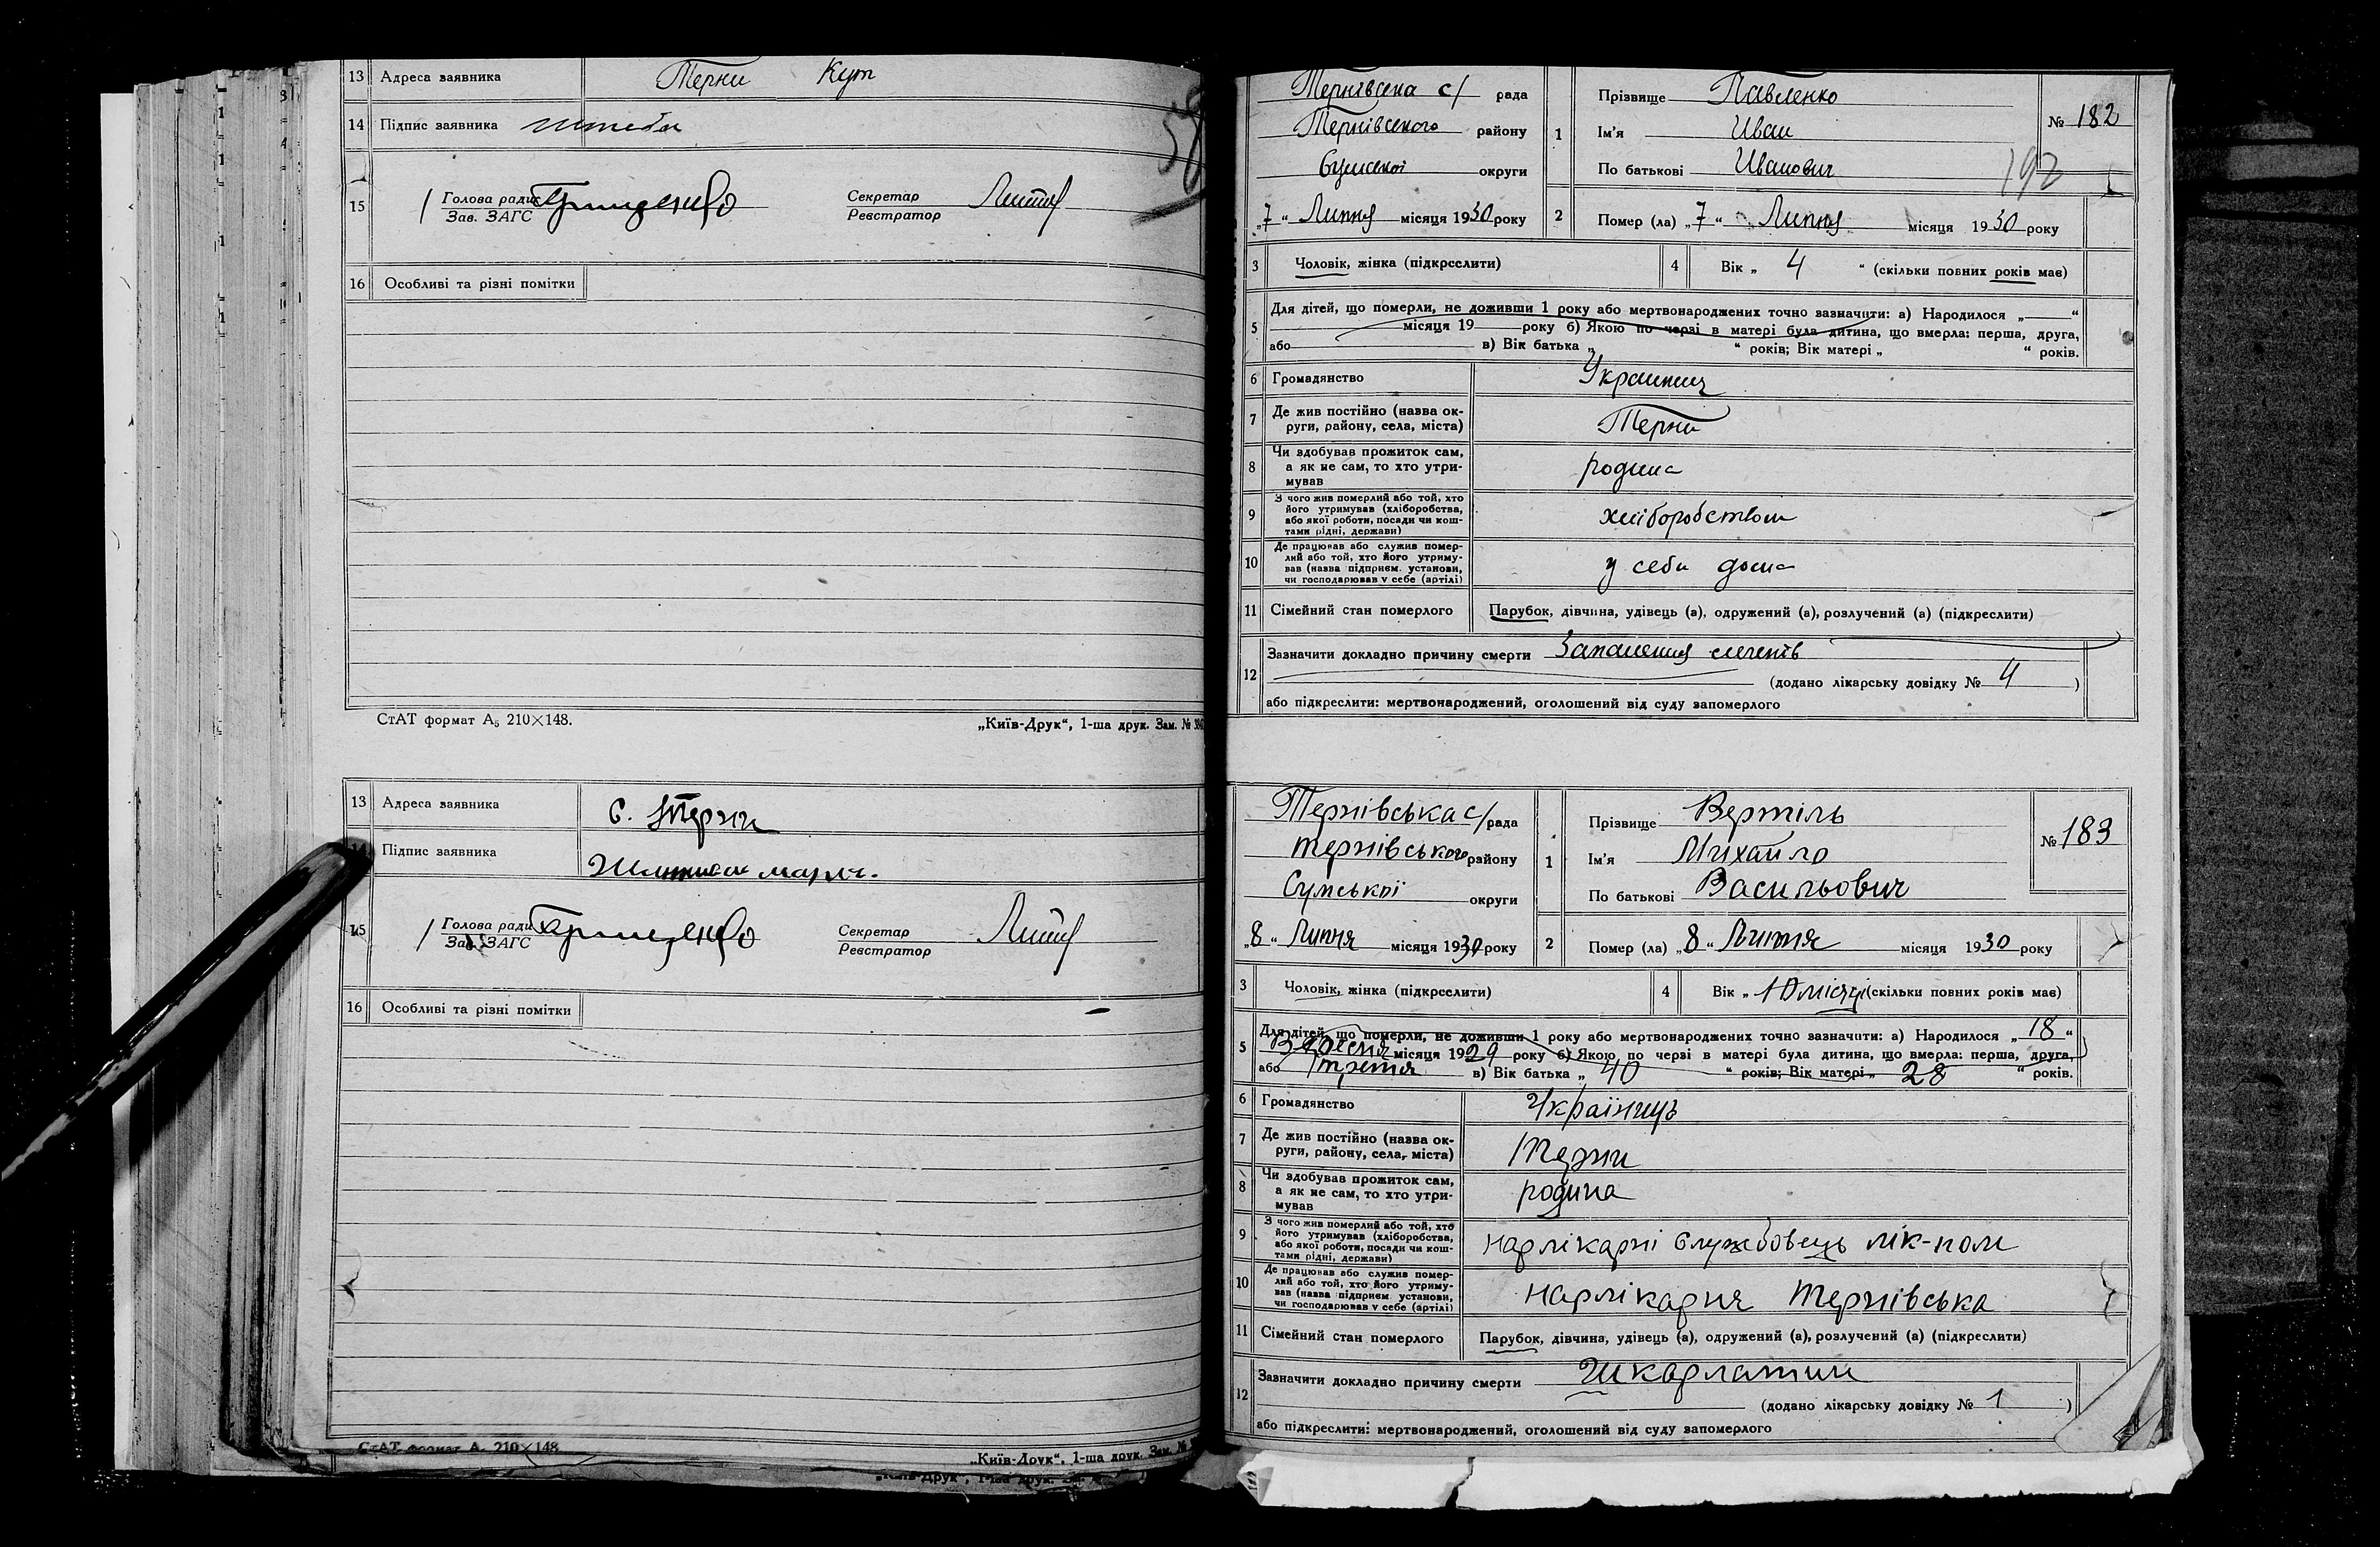 13 Адреса заявника Терни Кут
14 Підпис заявника
15 Голова ради Грищенко Секретар
Зав. ЗАГС Реєстратор
16 Особливі та різні помітки
СтАТ формат А5 210×148. „Київ-Друк“, 1-ша друк. Зам. №
13 Адреса заявника с. Терни
14 Підпис заявника
15 Голова ради Грищенко Секретар
Зав. ЗАГС Реєстратор
16 Особливі та різні помітки
СтАТ формат А5 210×148
„Київ-Друк“, 1-ша друк. Зам. №
„Київ-Друк“, 1-ша друк.
Тернівська с/ рада
Тернівського району
Сумської округи
„7“ Липня місяця 1930 року
1 Прізвище Павленко
Ім’я Иван
По батькові Иванович
№ 182
192
2 Помер (ла) „7“ Липня місяця 1930 року
3 Чоловік, жінка (підкреслити) 4 Вік „ 4 “ (скільки повних років має)
5 Для дітей, що померли, не доживши 1 року або мертвонароджених точно зазначити: а) Народилося „ “
місяця 19 року б) Якою по черві в матері була дитина, що вмерла: перша, друга,
або в) Вік батька „ “ років; Вік матері „ “ років.
6 Громадянство
7 Де жив постійно (назва ок-
руги, району, села, міста) Терни
8 Чи здобував прожиток сам,
а як не сам, то хто утри-
мував родина
9 З чого жив померлий або той, хто
його утримував (хліборобства,
або якої роботи, посади чи кош-
тами рідні, держави) хліборобством
10 Де працював або служив помер-
лий або той, хто його утриму-
вав (назва підприєм. установи,
чи господарював у себе (артілі) у себе дома
11 Сімейний стан померлого Парубок, дівчина, удівець (а), одружений (а), розлучений (а) (підкреслити)
12 Зазначити докладно причину смерти Запалення легенів
(додано лікарську довідку № 4 )
або підкреслити: мертвонароджений, оголошений від суду запомерлого
Тернівська с/ рада
Тернівського району
Сумської округи
„8“ Липня місяця 1930 року
1 Прізвище Вертіль
Ім’я Михайло
По батькові Васильович
№ 183
2 Помер (ла) „8“ Липня місяця 1930 року
3 Чоловік, жінка (підкреслити) 4 Вік „ 10 місяці (скільки повних років має)
5 Для дітей, що померли, не доживши 1 року або мертвонароджених точно зазначити: а) Народилося „ 18 “
Вересня місяця 1929 року б) Якою по черві в матері була дитина, що вмерла: перша, друга,
або третя в) Вік батька „ 40 “ років; Вік матері „ 28 “ років.
6 Громадянство Українець
7 Де жив постійно (назва ок-
руги, району, села, міста) Терни
8 Чи здобував прожиток сам,
а як не сам, то хто утри-
мував родина
9 З чого жив померлий або той, хто
його утримував (хліборобства,
або якої роботи, посади чи кош-
тами рідні, держави) нарлікарні службовець лік-пом
10 Де працював або служив помер-
лий або той, хто його утриму-
вав (назва підприєм. установи,
чи господарював у себе (артілі) нарлікарня Тернівська
11 Сімейний стан померлого Парубок, дівчина, удівець (а), одружений (а), розлучений (а) (підкреслити)
12 Зазначити докладно причину смерти Шкарлатин
(додано лікарську довідку № 1 )
або підкреслити: мертвонароджений, оголошений від суду запомерлого